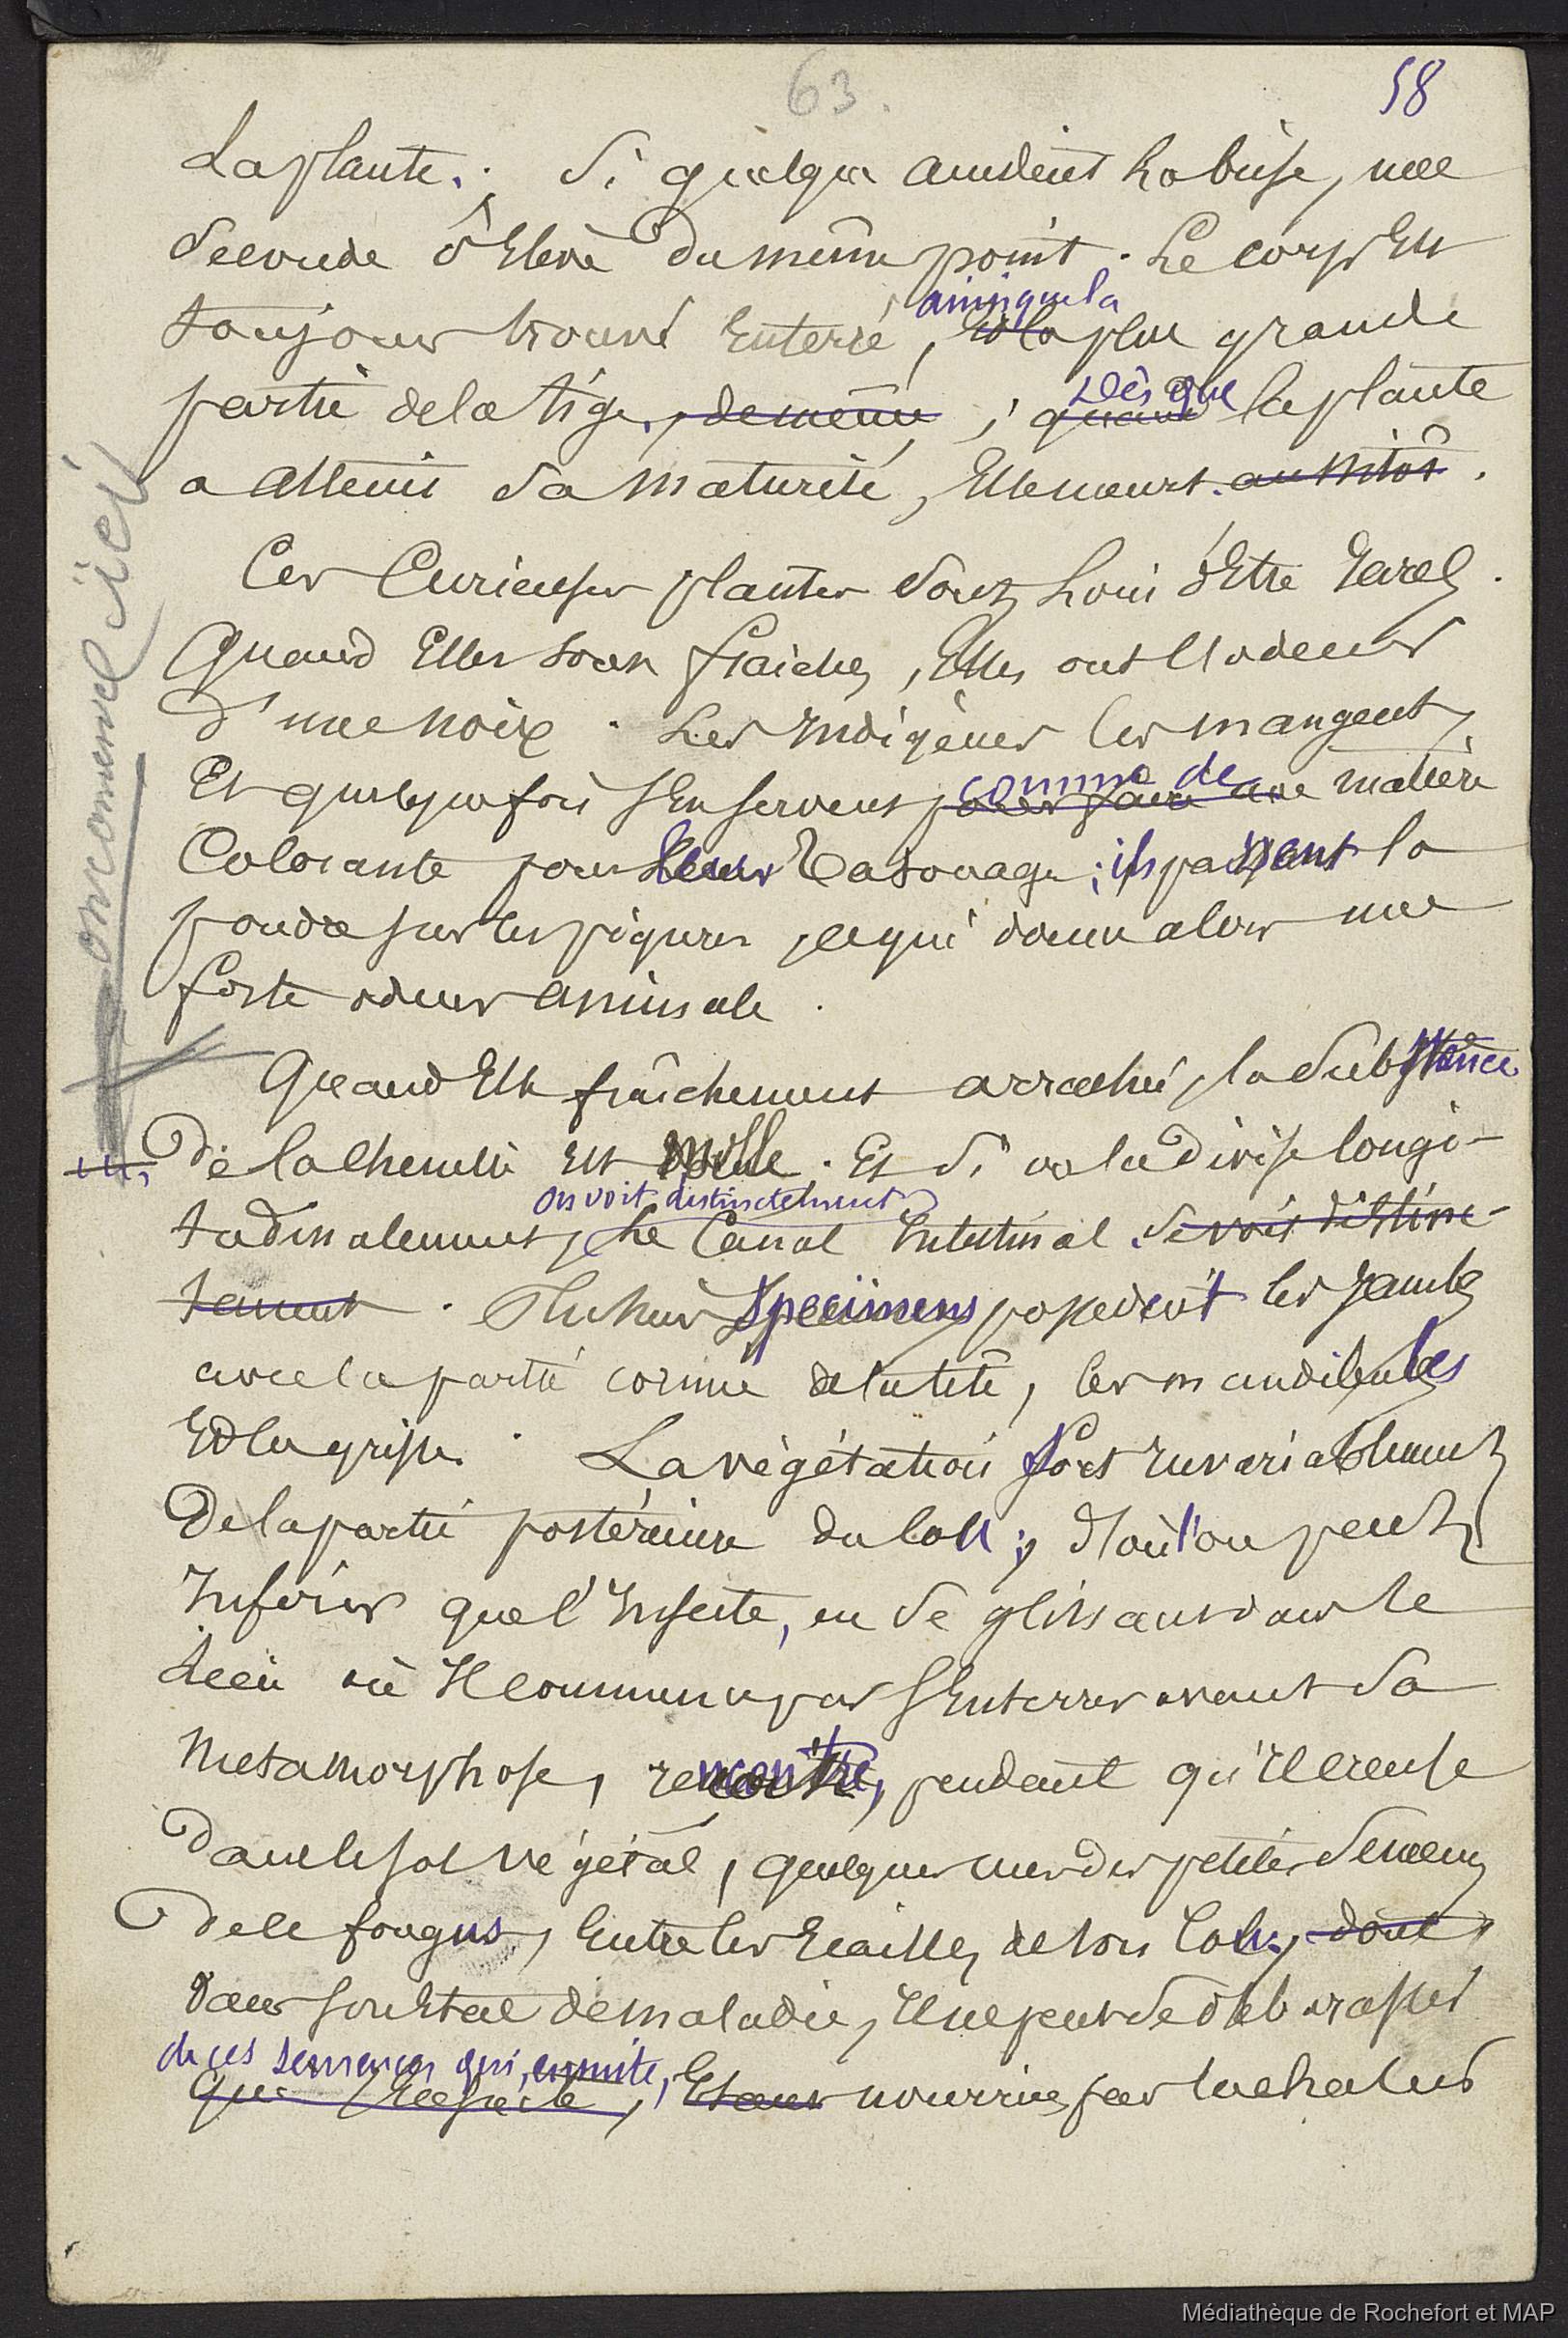 63.
58
La plante. ; Si quelque accident la brise, une
Seconde s'Elève du même point. Le corps Est
toujours trouvé Enterré, ainsi que la Et la plus grande
partie de la tige, de même ; Dès que quand la plante
a atteint Sa maturité, Elle meurt aussitôt.
Ces Curieuses plantes Sont Loin d'Etre Rares.
Quand Elles sont fraiches, Elles ont l'odeur
d'une noix. Les Indigènes les mangent,
Et quelquefois s'En servent comme de pour faire une matière
Colorante pour leur Tatouage ; ils passent la
poudre sur les piqures, ce qui donne alors une
forte odeur animale.
on commence ici
Quand Elle fraîchement arrachée, la Substance
De la Chenille Est molle. Et Si on la Divise longi-
tudinalement, on voit distinctement Le Canal Intestinal Se voit distinc-
tement. Plusieurs Spécimens possèdent les Jambes
avec la partie cornue de la tête, les mandibules
Et la griffe. La végétation sort Invariablement
De la partie postérieure du Cou ; d'où l'on peut
Inférer que l'Insecte, en Se glissant dans le
Lieu où Il commence par s'Enterrer avant Sa
Metamorphose, rencontre, pendant qu'Il creuse
Dans le sol végétal, quelques unes des petites Semences
De ce fongus, Entre les Ecailles de son Cou, dont
Dans son Etat de maladie, Il ne peut Se débarasser
de ces semences qui, ensuite, Et nourries par la chaleur
Médiathèque de Rochefort et MAP